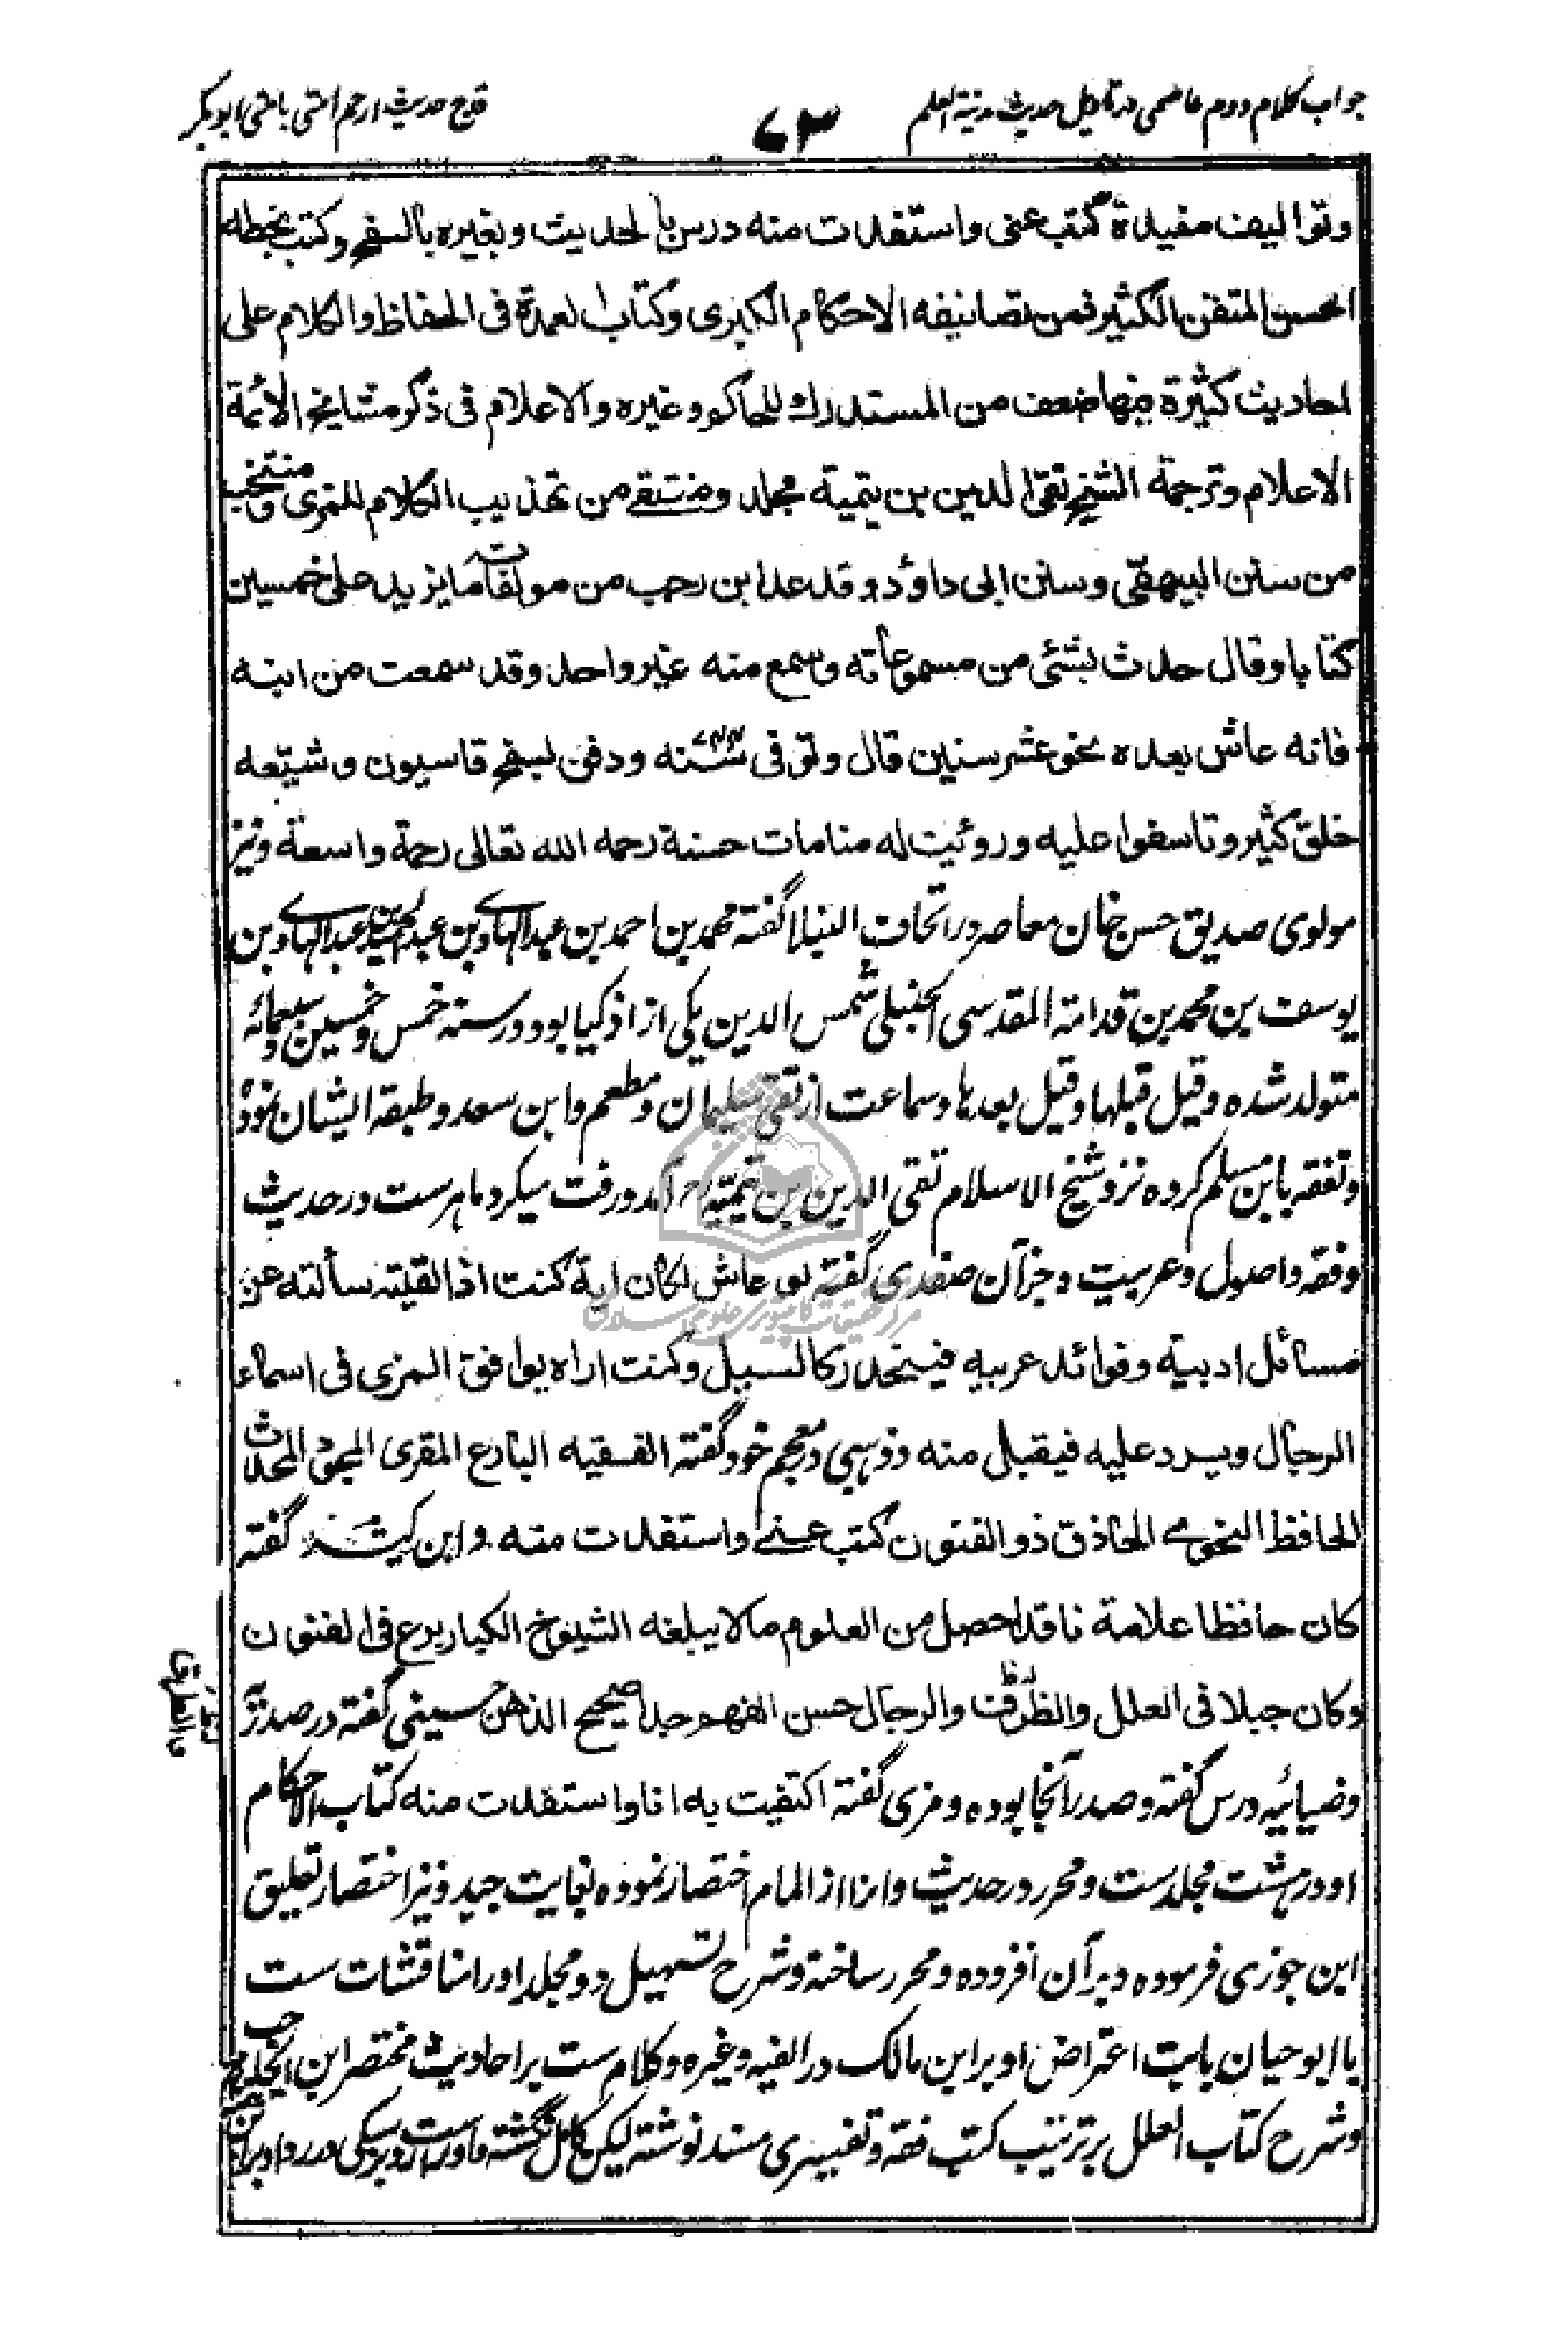 جواب کلام دوم عاصمی در تاویل حدیث مدینة العلم
۷۳
قدح حدیث ارحم امتی بامتی ابو بکر
وتوالیف مفیدة کتب عنی واستفدت منه درس بالحدیث وبغیره بالسفح وکتب بخطه
الحسن المتقن الکثیر فمن تصانیفه الاحکام الکبری وکتاب العمدة فی الحفاظ والکلام علی
احادیث کثیرة فیها ضعف من المستدرك للحاکم وغیره والاعلام فی ذکر مشایخ الائمة
الاعلام وترجمة الشیخ تقی الدین بن تیمیة مجلد ومنتقی من تهذیب الکلام للمزی ومنتخب
من سنن البیهقی وسنن ابی داؤد وقد عد ابن رجب من مولفاته ما یزید علی خمسین
کتابا وقال حدث بشئی من مسموعاته وسمع منه غیر واحد وقد سمعت من ابنه
فانه عاش بعده نحو عشر سنین قال وتوفی سنه ۷۴۴ ودفن بسفح قاسیون وشیّعه
خلق کثیر وتاسفوا علیه وروئیت له منامات حسنة رحمه الله تعالی رحمة واسعة ونیز
مولوی صدیق حسن خان معاصر در اتحاف النبلا گفته محمد بن احمد بن عبد الهادی بن عبد الحمید بن عبد الهادی بن
یوسف بن محمد بن قدامة المقدسی الحنبلی شمس الدین یکی از اذکیا بود در سنه خمس وخمسین وسبعمائه
متولد شده وقیل قبلها وقیل بعدها وسماعت از تقی سلیمان ومطعم وابن سعد وطبقه ایشان نموده
وتفقه بابن مسلم کرده نزد شیخ الاسلام تقی الدین بن تیمیّه رح آمد ورفت میکرد ماهرست در حدیث
وفقه واصول وعربیت وجز آن صفدی گفته لو عاش لکان ایة کنت اذا لقیته سألته عن
مسائل ادبیة وفوائد عربیه فینحدر کالسیل وکنت اراه یوافق المزی فی اسماء
الرجال ویرد علیه فیقبل منه وذهبی در معجم خود گفته الفقیه البارع المقری المجود المحدث
الحافظ النحوی الحاذق ذو الفنون کتب عنی واستفدت منه وابن کثیر گفته
کان حافظا علامة ناقدا حصل من العلوم مالا یبلغه الشیوخ الکبار برع فی الفنون
وکان جبلا فی العلل والطرق والرجال حسن الفهم جدا صحیح الذهن حسینی گفته در صدریّه
وضیائیه درس گفته وصدر آنجا بوده ومزی گفته اکتفیت به انا واستفدت منه کتاب الاحکام
او در هشت مجلدست ومحرر در حدیث وانرا از المام اختصار نموده بغایت جید ونیز اختصار تعلیق
ابن جوزی فرموده وبرآن افزوده ومحرر ساخته وشرح تسهیل دو مجلد اورا مناقشات ست
با ابو حیان بابت اعتراض او بر ابن مالک در الفیه وغیره وکلام ست بر احادیث مختصر ابن الحاجب
وشرح کتاب العلل بر ترتیب کتب فقه وتفسیری مسند نوشته لیکن کامل نگشته واوراست رد بر سبکی در رد او بر ابن